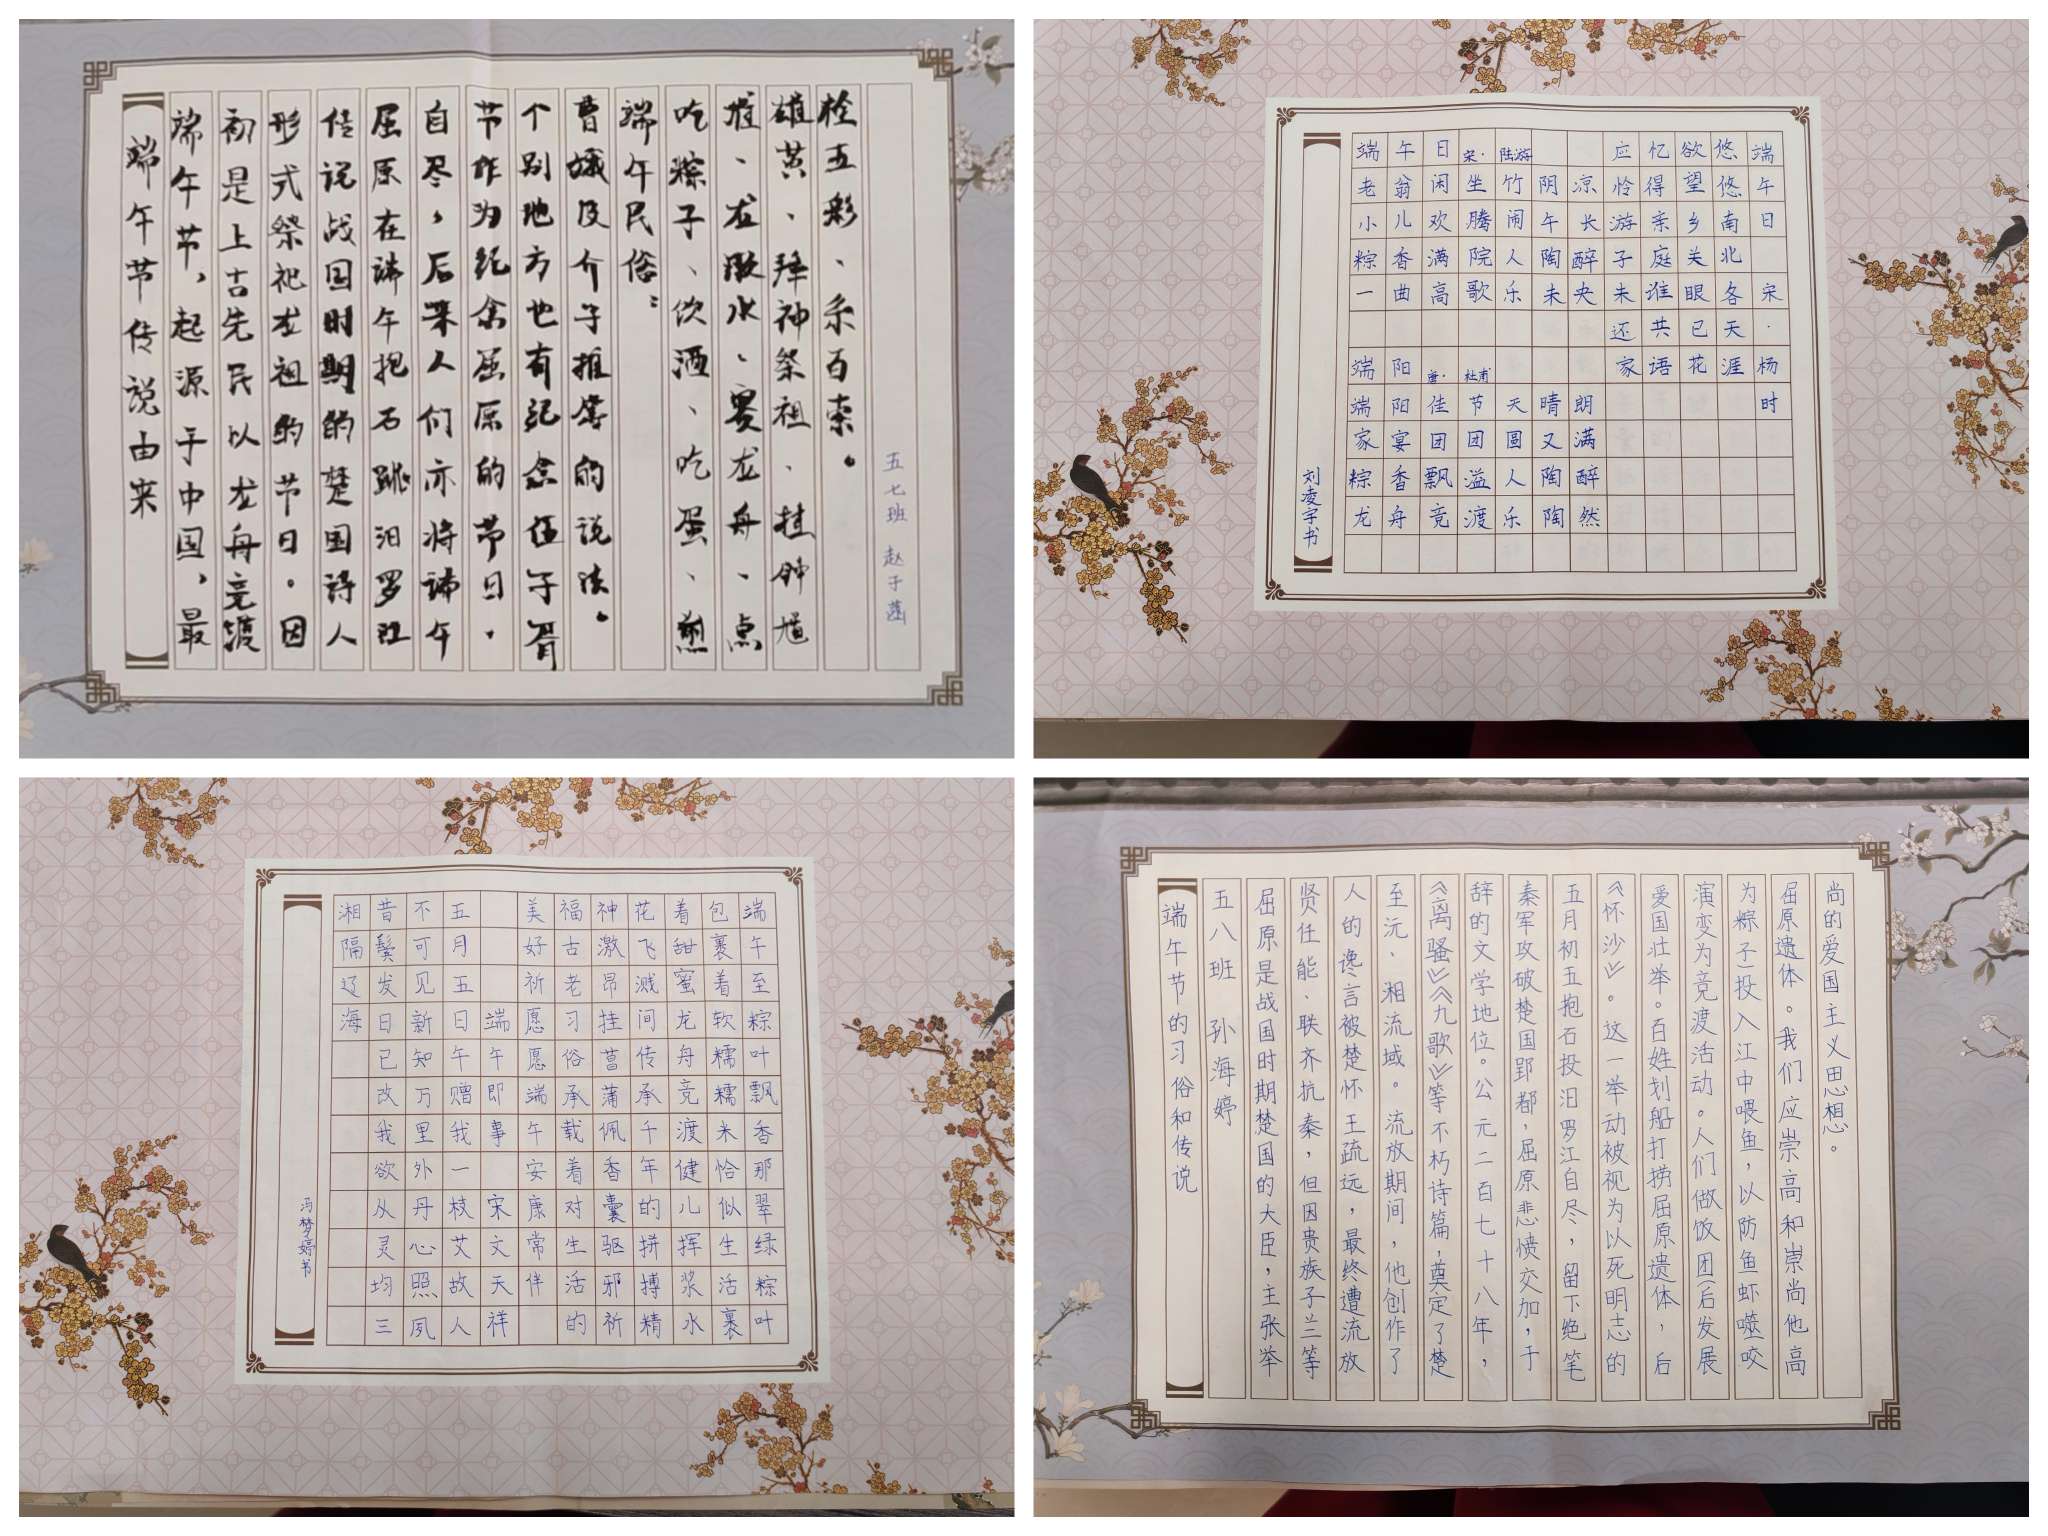 端午节传说由来
端午节，起源于中国，最
初是上古先民以龙舟竞渡
形式祭祀龙祖的节日。因
传说战国时期的楚国诗人
屈原在端午抱石跳汨罗江
自尽，后来人们亦将端午
节作为纪念屈原的节日，
个别地方也有纪念伍子胥
曹娥及介子推等的说法。
端午民俗：
吃粽子、饮酒、吃蛋、煎
堆、龙散水、赛龙舟、点
雄黄、拜神祭祖、挂钟馗
栓五彩、系百索。
五七班 赵于菡
端午日 宋·杨时
悠悠南北各天涯
欲望乡关眼已花
忆得亲庭谁共语
应怜游子未还家
端午日 宋·陆游
老翁闲坐竹阴凉
小儿欢腾闹午长
粽香满院人陶醉
一曲高歌乐未央
端阳 唐·杜甫
端阳佳节天晴朗
家宴团团圆又满
粽香飘溢人陶醉
龙舟竞渡乐陶然
刘凌宇书
端午至粽叶飘香那翠绿粽叶
包裹着软糯糯米恰似生活裹
着甜蜜龙舟竞渡健儿挥浆水
花飞溅间传承千年的拼搏精
神激昂挂菖蒲佩香囊驱邪祈
福古老习俗承载着对生活的
美好祈愿愿端午安康常伴
端午即事 宋文天祥
五月五日午赠我一枝艾故人
不可见新知万里外丹心照夙
昔鬓发日已改我欲从灵均三
湘隔辽海
冯梦婷书
端午节的习俗和传说
五八班 孙海婷
屈原是战国时期楚国的大臣，主张举
贤任能、联齐抗秦，但因贵族子兰等
人的谗言被楚怀王疏远，最终遭流放
至沅、湘流域。流放期间，他创作了
《离骚》《九歌》等不朽诗篇，奠定了楚
辞的文学地位。公元二百七十八年，
秦军攻破楚国郢都，屈原悲愤交加，于
五月初五抱石投汨罗江自尽，留下绝笔
《怀沙》。这一举动被视为以死明志的
爱国壮举。百姓划船打捞屈原遗体，后
演变为竞渡活动。人们做饭团（后发展
为粽子）投入江中喂鱼，以防鱼虾噬咬
屈原遗体。我们应崇高和崇尚他高
尚的爱国主义思想。